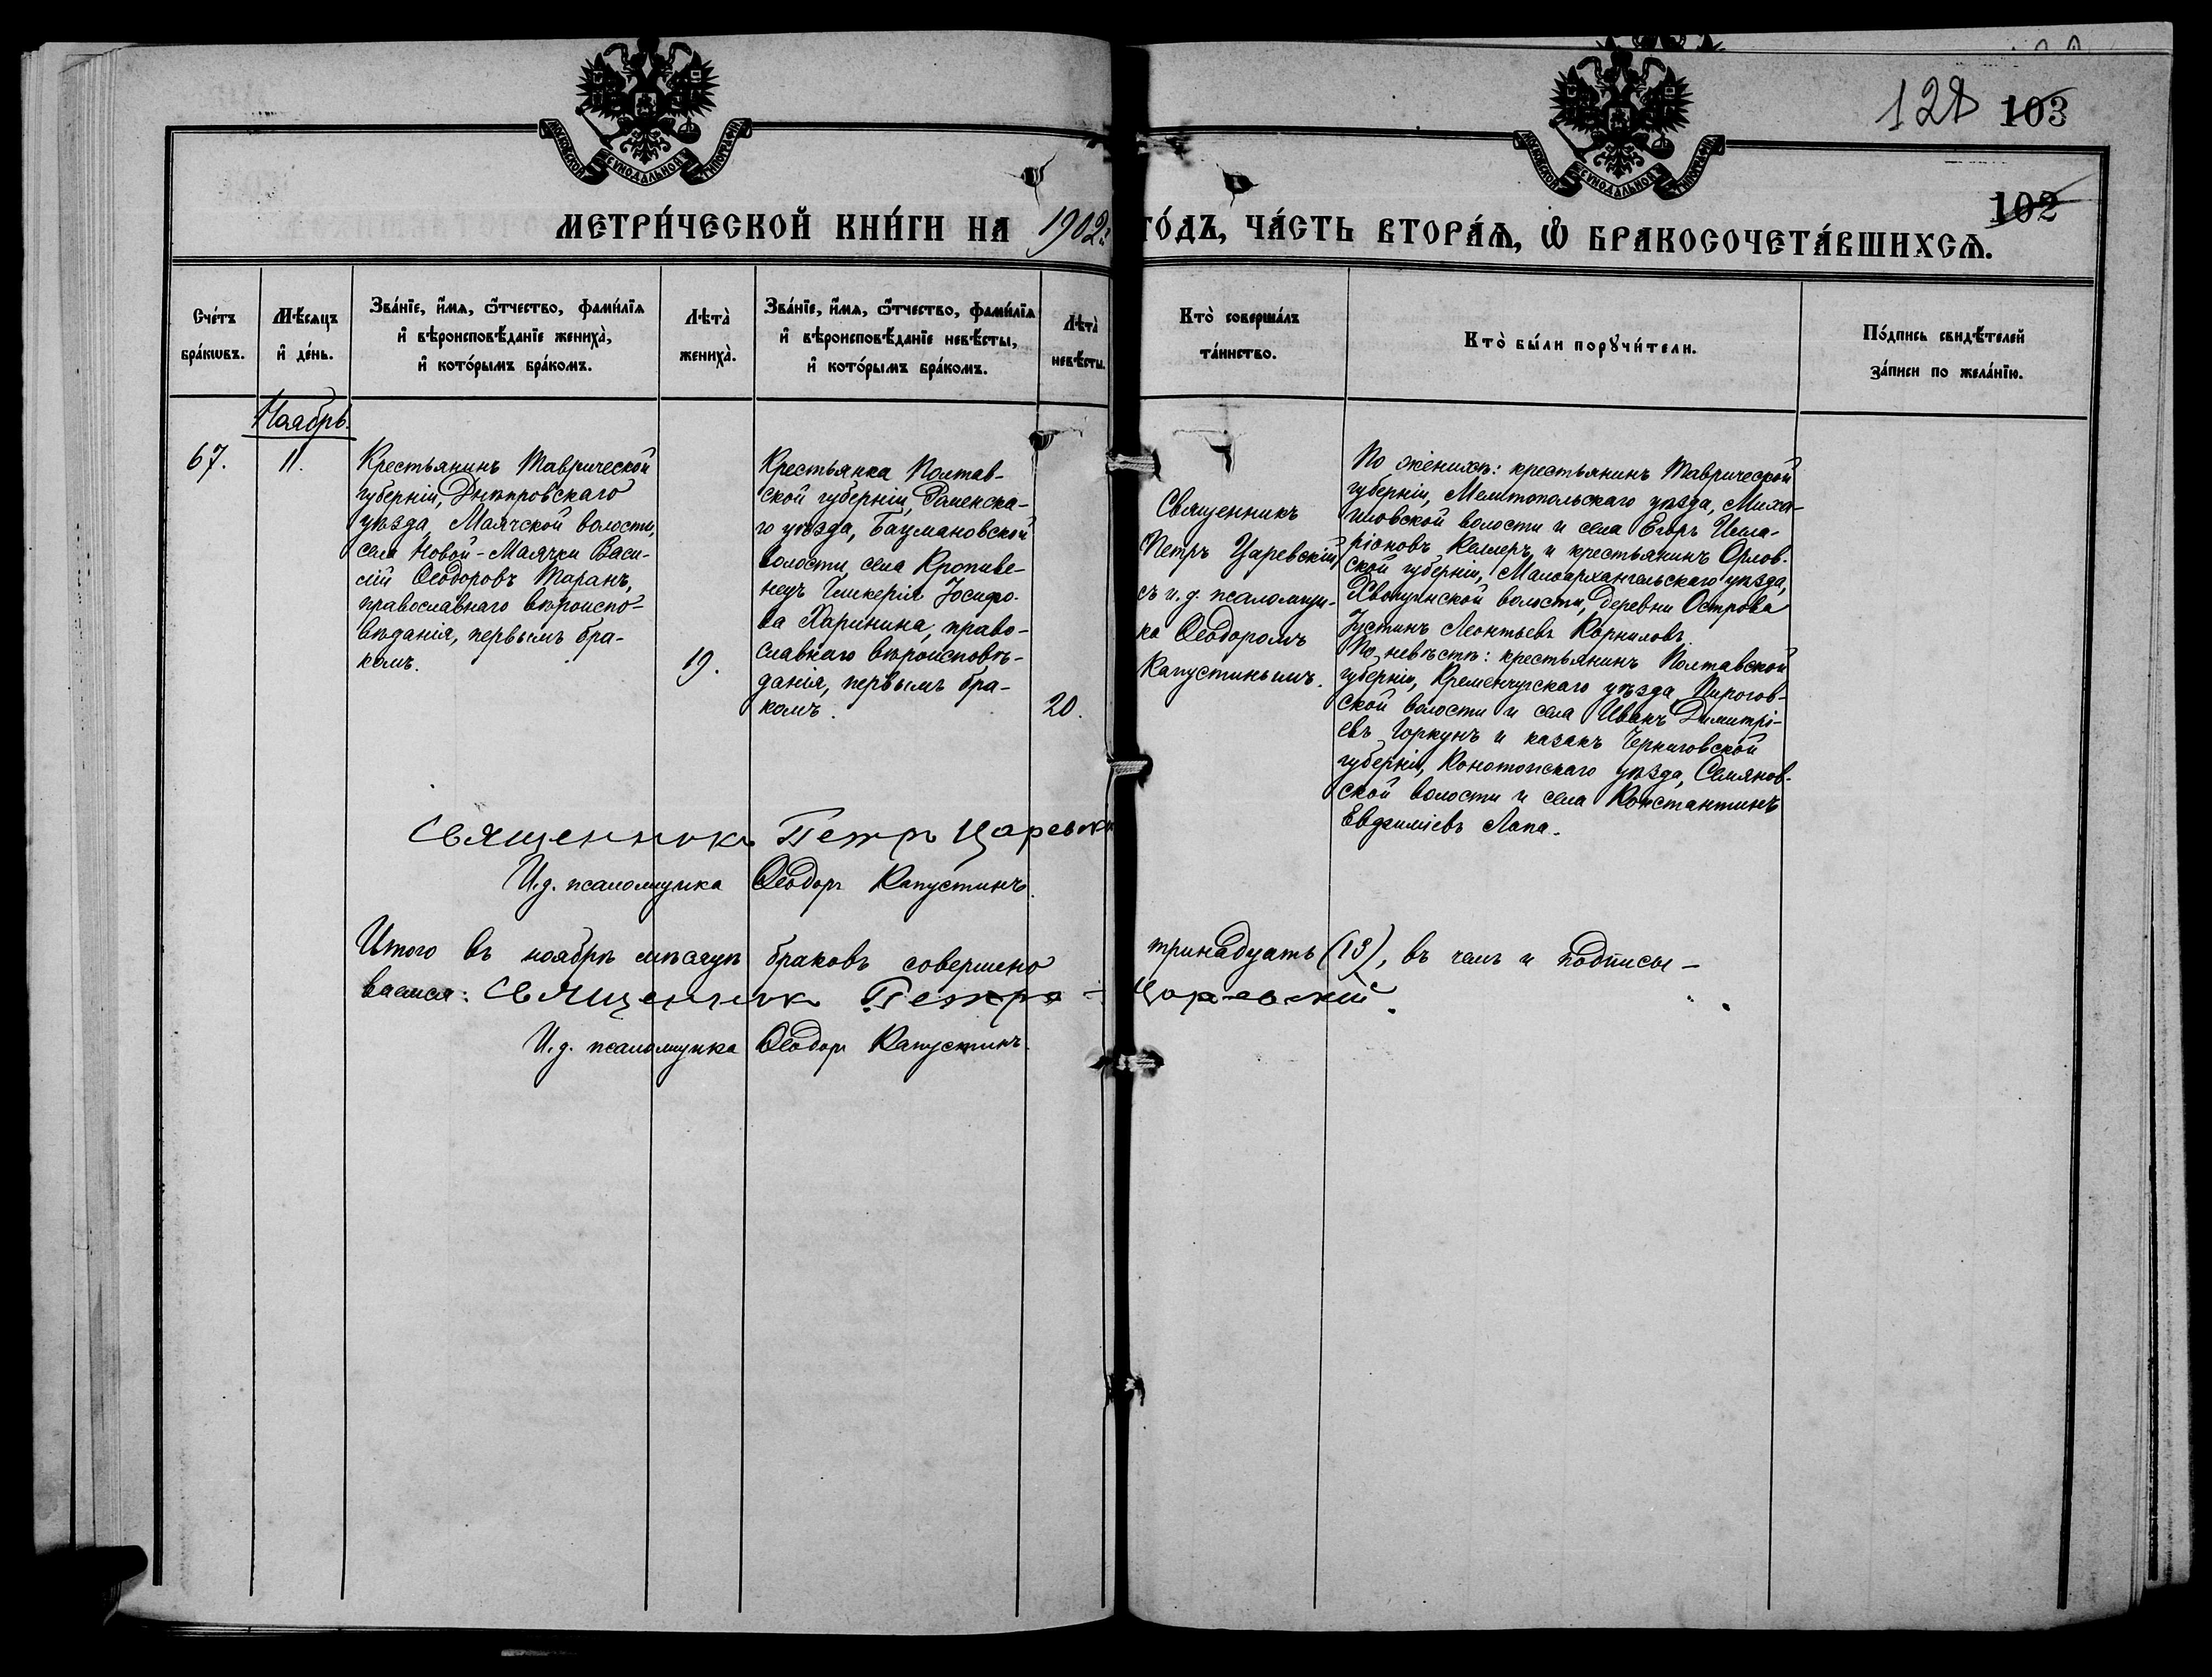 128 103
102
МЕТРИ́ЧЕСКОЙ КНИ́ГИ НА 1902 ГО́ДЪ, ЧА́СТЬ ВТОРА́Ѧ, Ѽ БРАКОСОЧЕТА́ВШИХСѦ.
Сче́тъ
бра́кѡвъ.
Мѣ́сяцъ
и҆ де́нь.
Зва́нїе, и҆́мѧ, ѻ҆́тчество, фами́лїѧ
и҆ вѣроисповѣ́данїе жениха̀,
и҆ кото́рымъ бра́комъ.
Лѣта̀
жениха̀.
Зва́нїе, и҆́мѧ, ѻ҆́тчество, фами́лїѧ
и҆ вѣроисповѣ́данїе невѣ́сты,
и҆ кото́рымъ бра́комъ.
Лѣта̀
невѣ́сты.
Кто̀ соверша́лъ
та́инство.
Кто̀ бы́ли порꙋчи́тели.
По́дпись свидѣ́телей
за́писи по жела́нїю.
Ноябрь.
67.
11.
Крестьянинъ Таврической
губерніи, Днѣпровскаго
уѣзда, Маячской волости,
села Новой-Маячки Васи-
лій Ѳеодоровъ Таранъ,
православнаго вѣроиспо-
вѣданія, первымъ бра-
комъ.
19.
Крестьянка Полтав-
ской губерніи, Роменска-
го уѣзда, Бацмановской
волости, села Кропиве-
нецъ Гликерія Іосифо-
ва Харинина, право-
славнаго вѣроисповѣ-
данія, первымъ бра-
комъ.
20.
Священникъ
Петръ Царевскій,
съ и. д. псаломщи-
ка Ѳеодоромъ
Капустинымъ.
По женихѣ: крестьянинъ Таврической
губерніи, Мелитопольскаго уѣзда, Миха-
иловской волости и села Егоръ Илла-
ріоновъ Келлеръ, и крестьянинъ Орлов-
ской губерніи, Малоархангельскаго уѣзда,
волости, деревни Острова
Іустинъ Леонтьевъ Корниловъ.
По невѣстѣ: крестьянинъ Полтавской
губерніи, Кременчугскаго уѣзда, Пирогов-
ской волости и села Иванъ Димитрі-
евъ Горкунъ и казакъ Черниговской
губерніи, Конотопскаго уѣзда, Семянов-
ской волости и села Константинъ
Евфиміевъ Лапа.
Священникъ Петръ Царевскі
И. д. псаломщика Ѳеодоръ Капустинъ.
Итого въ ноябрѣ мѣсяцѣ браковъ совершено тринадцать (13), въ чемъ и подписы-
ваемся: Священникъ Петръ Царевскій.
И. д. псаломщика Ѳеодоръ Капустинъ.